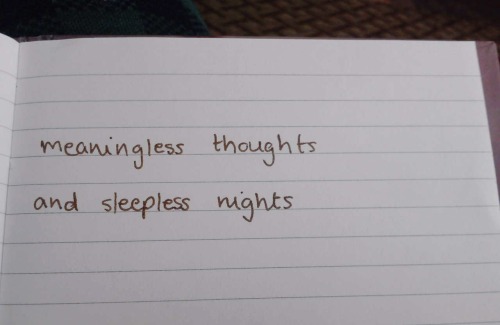 meaningless thoughts
and sleepless nights